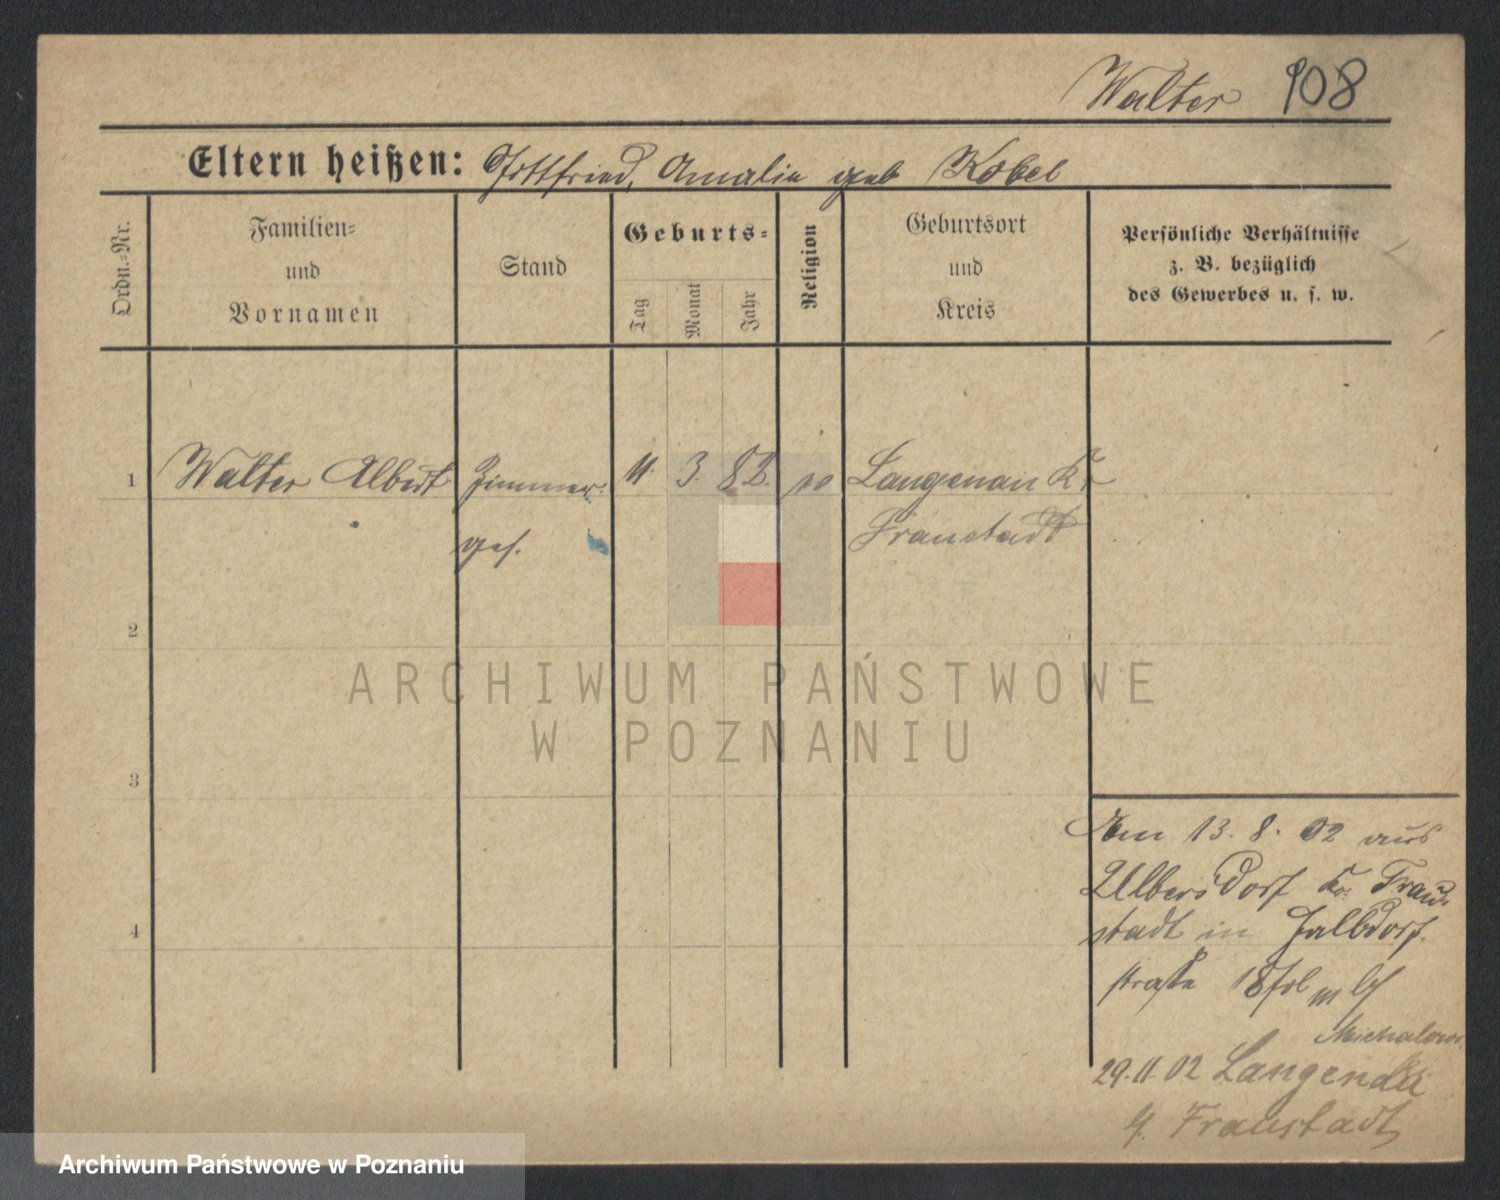 Walter 908
Eltern heißen: Gottfried, Amalie geb Kobel
Ordn.-Nr.
Familien-
und
Vornamen
Stand
Geburts-
Tag
Monat
Jahr
Religion
Geburtsort
und
Kreis
Persönliche Verhältnisse
z. B. bezüglich
des Gewerbes u. s. w.
1 Walter Albert Zimmer- 11. 3. 82. Langenau Kr
ges. Fraustadt
2
3
4
Am 13. 8. 02 aus
Ulbersdorf Kr. Frau-
stadt in
straße 18
Michalow
29.11.02 Langenau
Kr. Fraustadt
ARCHIWUM PAŃSTWOWE
W POZNANIU
Archiwum Państwowe w Poznaniu